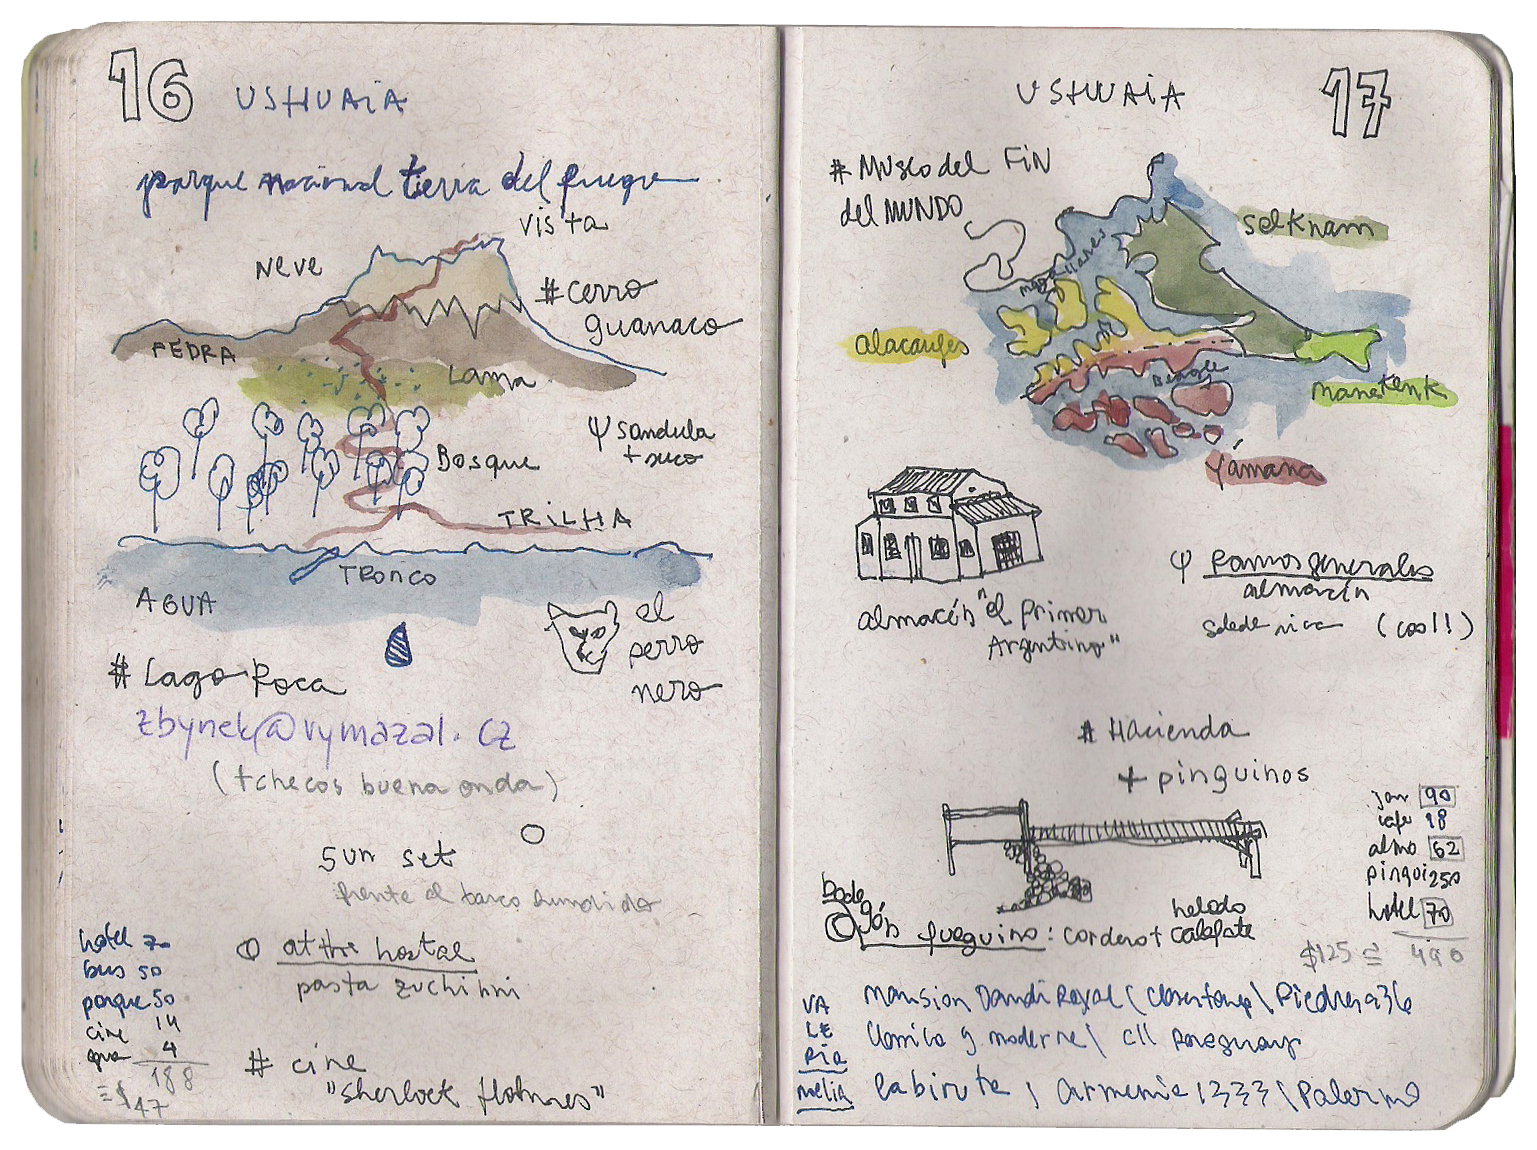 16 USHUAIA
parque nacional tierra del fuego
vista
NEVE
#cerro
guanaco
PEDRA
Lama
Ψ sandula
+ suco
Bosque
TRILHA
TRONCO
AGUA
el
perro
nero
# Lago Roca
zbynek@vymazal.cz
(tchecos buena onda)
sun set
frente al barco hundido
at the hostal
pasta zuchinni
hotel 70
bus 50
parque 50
cine 14
4
188
= $47
# cine
"Sherlock Holmes"
USHUAIA 17
# Museo del FIN
del MUNDO
magallanes
selknam
alacalufes
Beagle
manekenk
Yámana
almacén "el primer
Argentino"
Ψ Ramos generales
almacén
(cool!)
# Hacienda
+ pinguinos
90
cafe 18
almo 62
pingui 250
hotel 70
490
$125 ≅
bodegón fueguino: cordero + helado calafate
VA
LE
RIA
melia
mansion Dandi Royal ( \ Piedras 936
y moderne \ cll paraguay
Labirute, Armenia 1333 \ Palermo